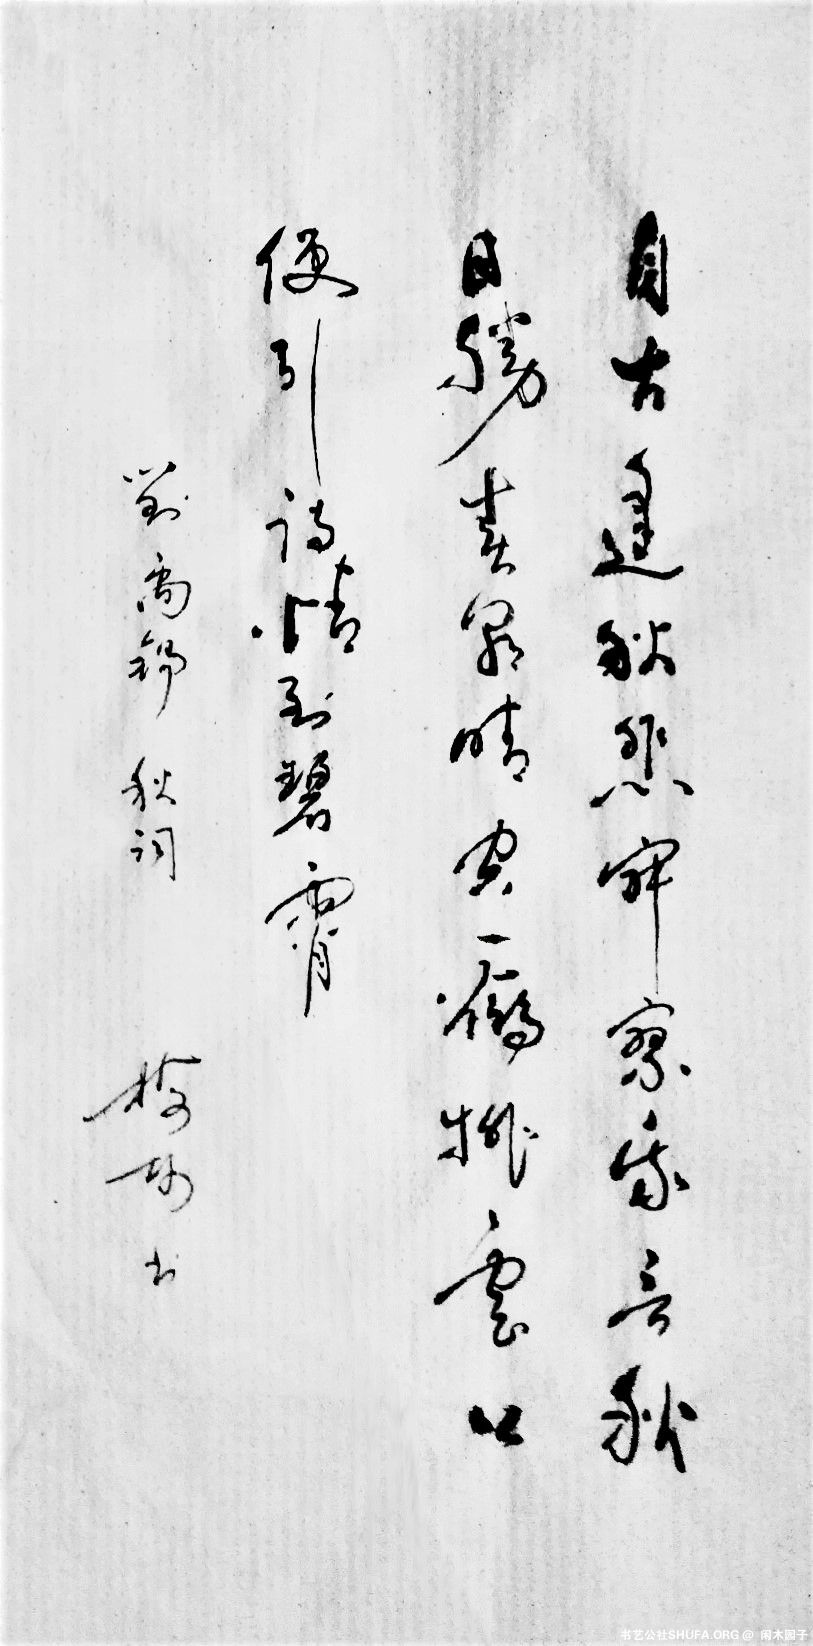 自古逢秋悲寂寥我言秋
日勝春朝晴空一鶴排雲上
便引詩情到碧霄
劉禹錫 秋詞 書
书艺公社SHUFA.ORG @ 闲木园子